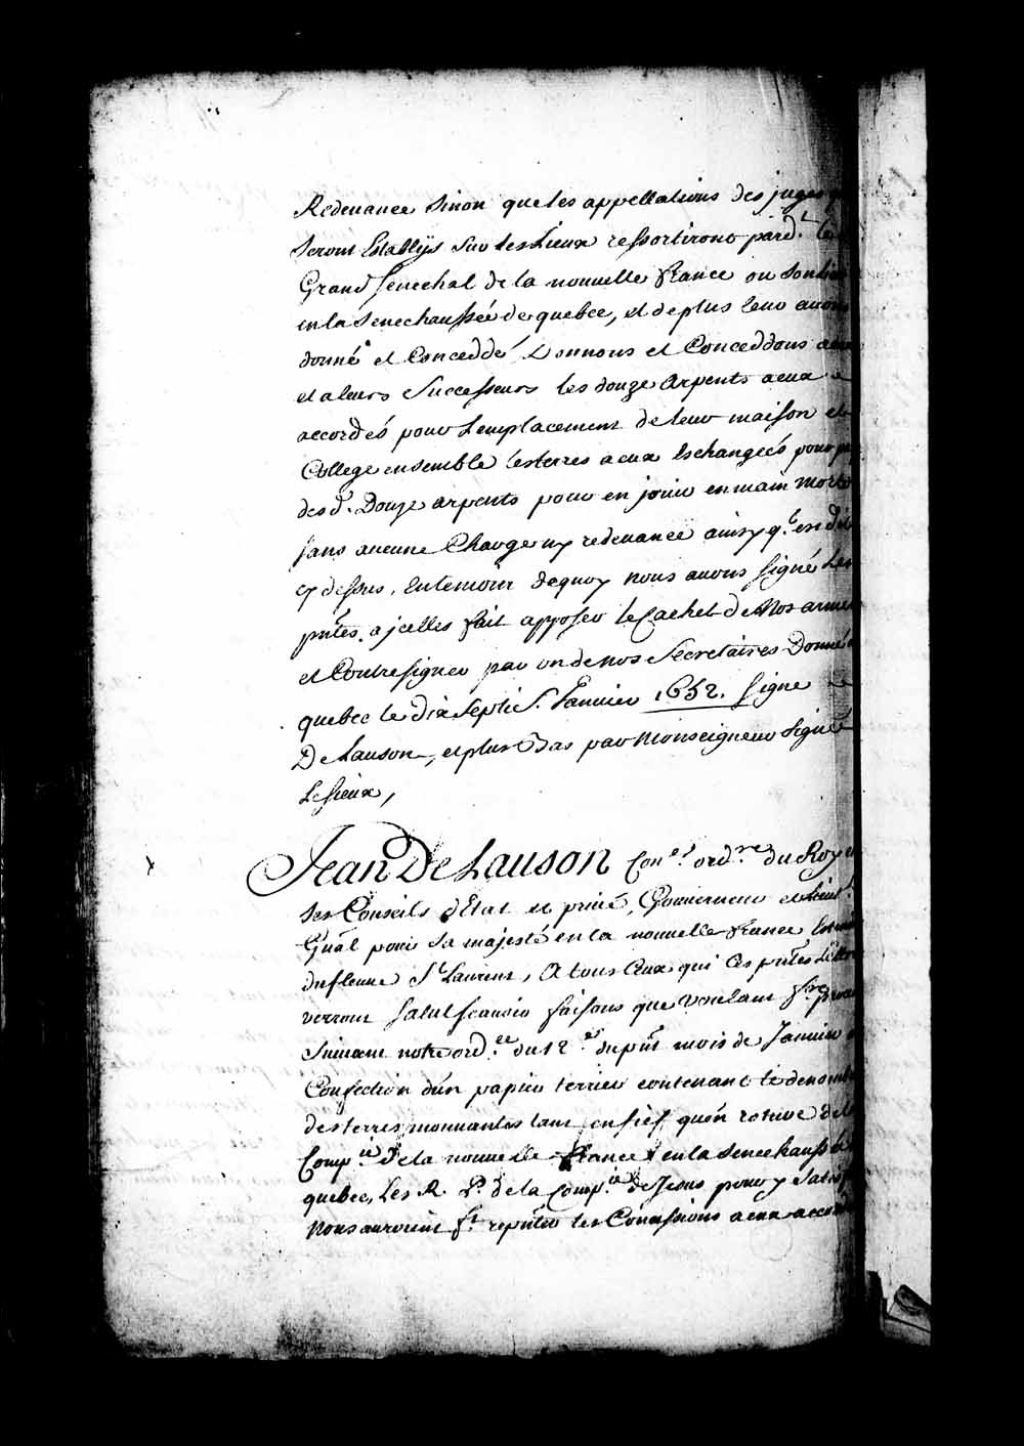 Redeuance sinon que les appellations des juges
seront Establÿs sur les Lieux ressortiront pard.t le
Grand senechal de la nouuelle france ou son
en la senechaussée de quebec, et de plus leur auons
donné et Conceddé Donnons et Conceddons a eux
et a leurs Successeurs les douze Arpents a eux
accordés pour Lemplacement de leur maison et
College ensemble les terres a eux Eschangées pour
des d. Douze arpents pour en jouir en main morte
sans aucune Charge ny redeuance ainsy q.l est dit
cy dessus, En temoin dequoy nous auons signé Les
pntes. a jcelles fait apposer le Cachet de Nos armes
et Contresigner par un de nos Secretaires Donné
quebec le dix Septie. Januier 1652. signe
De Lauson, et plus bas par Monseigneur signé
Lesieux,
Jean De Lauson Con.er ord.re du Roy
ses Conseils d'Etat et priué, Gouuerneur et Lieut.t
Gnal pour Sa majesté en la nouuelle france
du fleuue St Laurent, A tous Ceux qui Ces pntes Lettres
verront salut scauoir faisons que voulant
Suiuant notre ord.ce du 12.e du pnt mois de Januier
Confection d'un papier terrier contenant le
des terres mouuantes tant en fief qu'en roture de la
Comp.ie de la nouuelle france en la Senechaussée
quebec, Les R. P. de la Comp.ie de Jesus pour y
Nous auroient f.t reputer les Concessions a eux